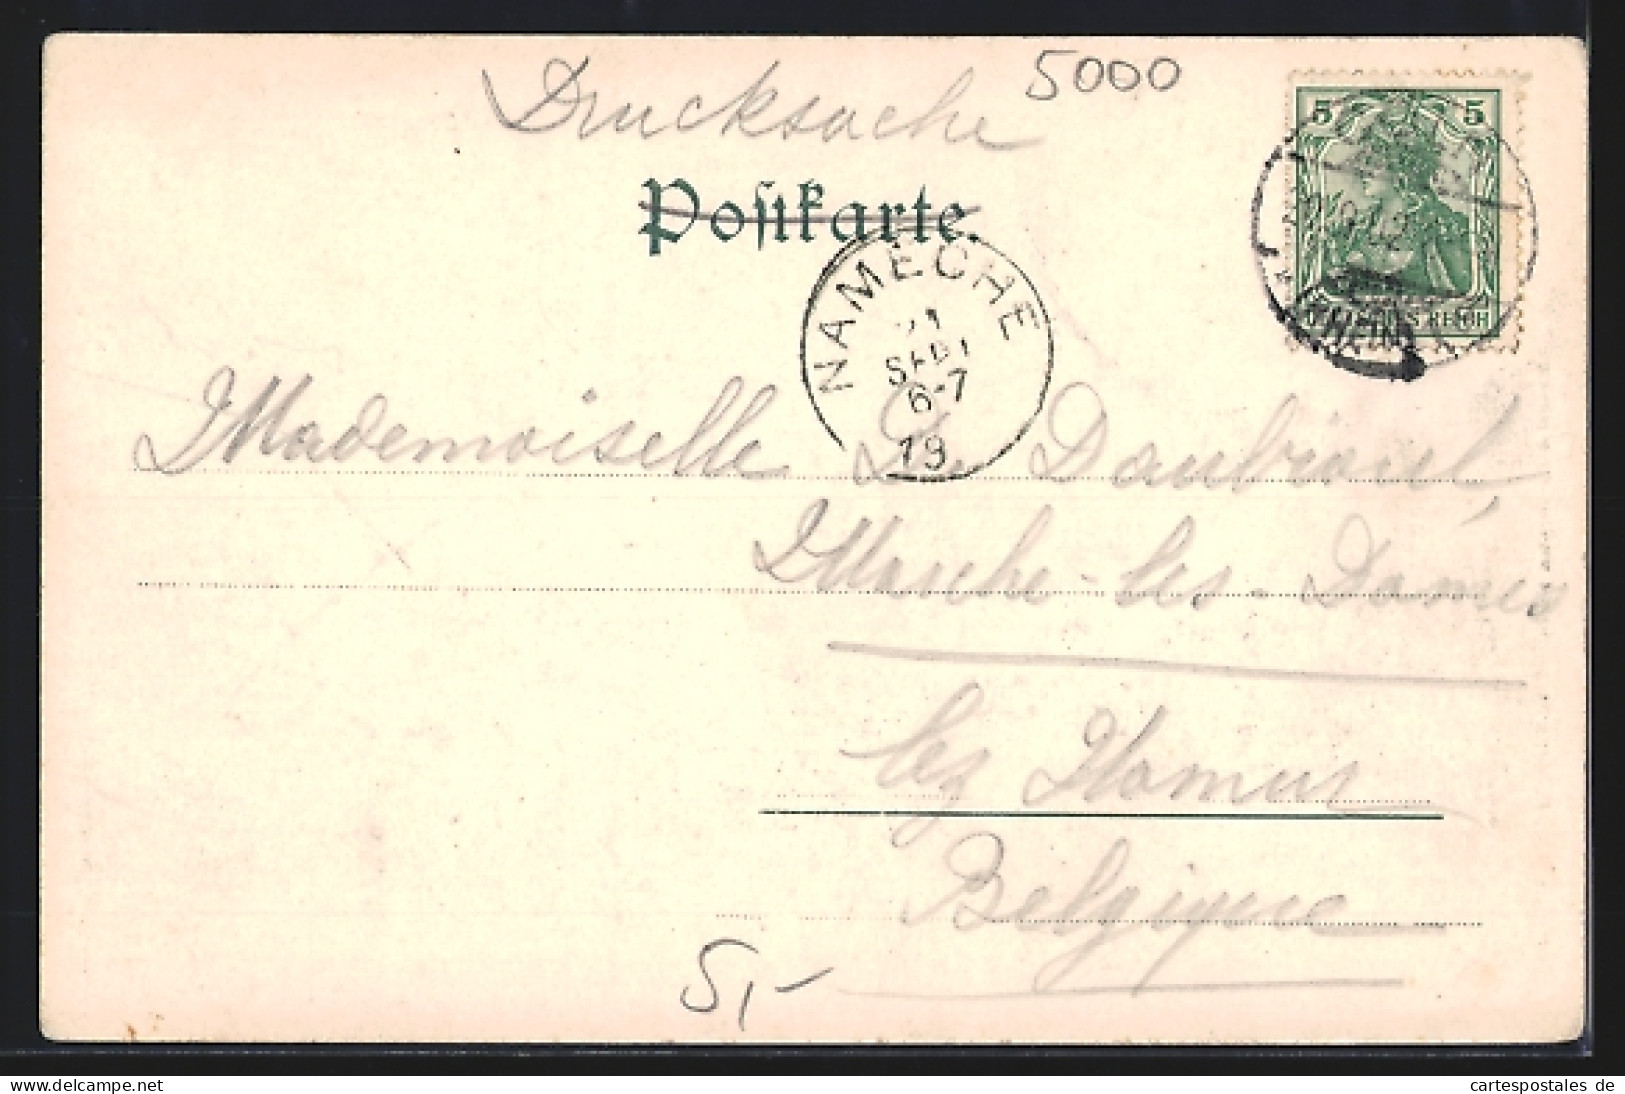 Drucksache
5000
Postkarte.
5 5
DEUTSCHES REICH
NAMÈCHE
21
SEPT
6-7
19
Mademoiselle
Marche-les-Dames
lez Namur
Belgique
5,-
cartespostales de